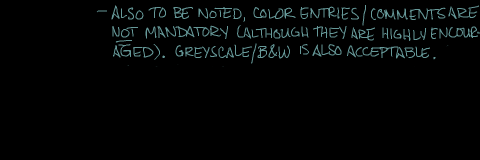 – ALSO TO BE NOTED, COLOR ENTRIES/COMMENTS ARE
NOT MANDATORY (ALTHOUGH THEY ARE HIGHLY ENCOUR-
AGED). GREYSCALE/B&W IS ALSO ACCEPTABLE.